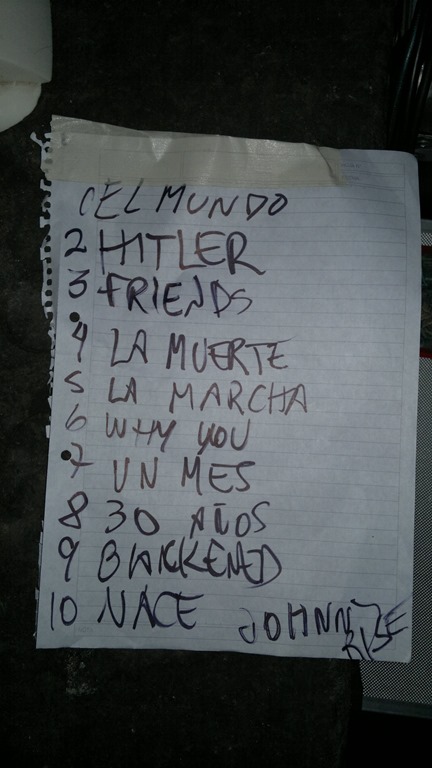 (EL MUNDO
2 HITLER
3 FRIENDS
4 LA MUERTE
5 LA MARCHA
6 WHY YOU
7 UN MES
8 30 AÑOS
9
10 NACE JOHNNY
RISE